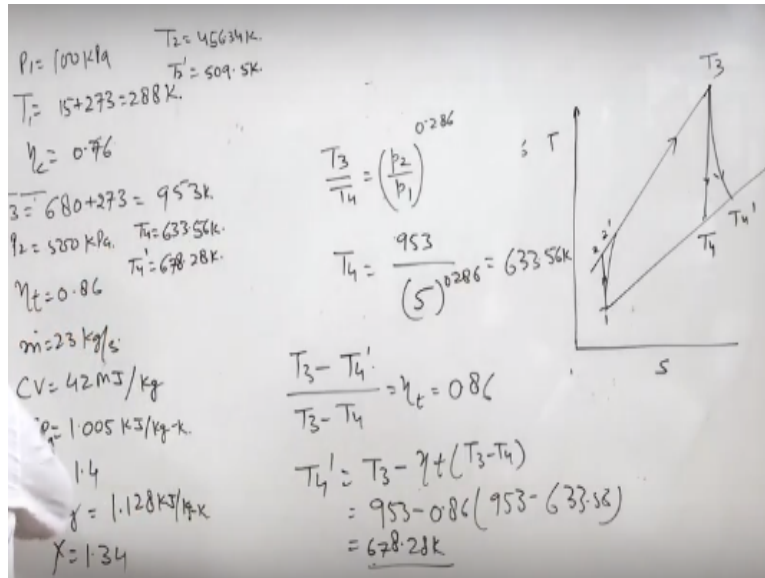 P1= 100kPa
T2= 456.34K.
T2'= 509.5K.
T1= 15+273=288K.
ηc= 0.76
3= 680+273= 953K.
T4=633.56K.
T4'=678.28K
ηt=0.86
ṁ=23 kg/s
CV=42MJ/kg
= 1.005 KJ/kg-K.
1.4
γ= 1.128KJ/kg-K
γ=1.34
T3/T4 = (P2/P1)^0.286
T4= 953/(5)^0.286 = 633.56K
(T3-T4')/(T3-T4) = ηt = 0.86
T4' = T3 - ηt(T3-T4)
= 953-0.86(953-633.56)
= 678.28K
T
T3
2
2'
T4
T4'
1
S